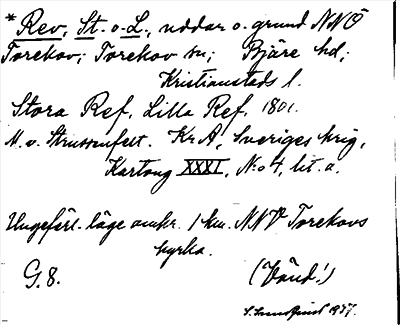 * Rev, St. o. L., uddar o. grund NNÖ
Torekov; Torekov sn; Bjäre hd;
Kristianstads l.
Stora Ref, Lilla Ref, 1801.
M. v. Strussenfelt. Kr A, Sveriges krig,
Kartong XXXI, No 4, lit. a.
Ungefärl. läge omkr. 1 km. NNV Torekovs
kyrka.
G. 8. (Vänd!)
1937.